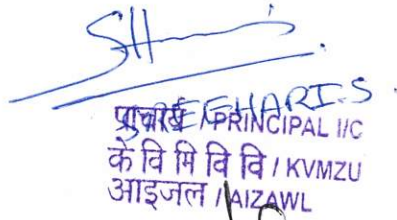 SREEHARI.S.
प्राचार्य / PRINCIPAL I/C
के वि मि वि वि / KVMZU
आइजल / AIZAWL